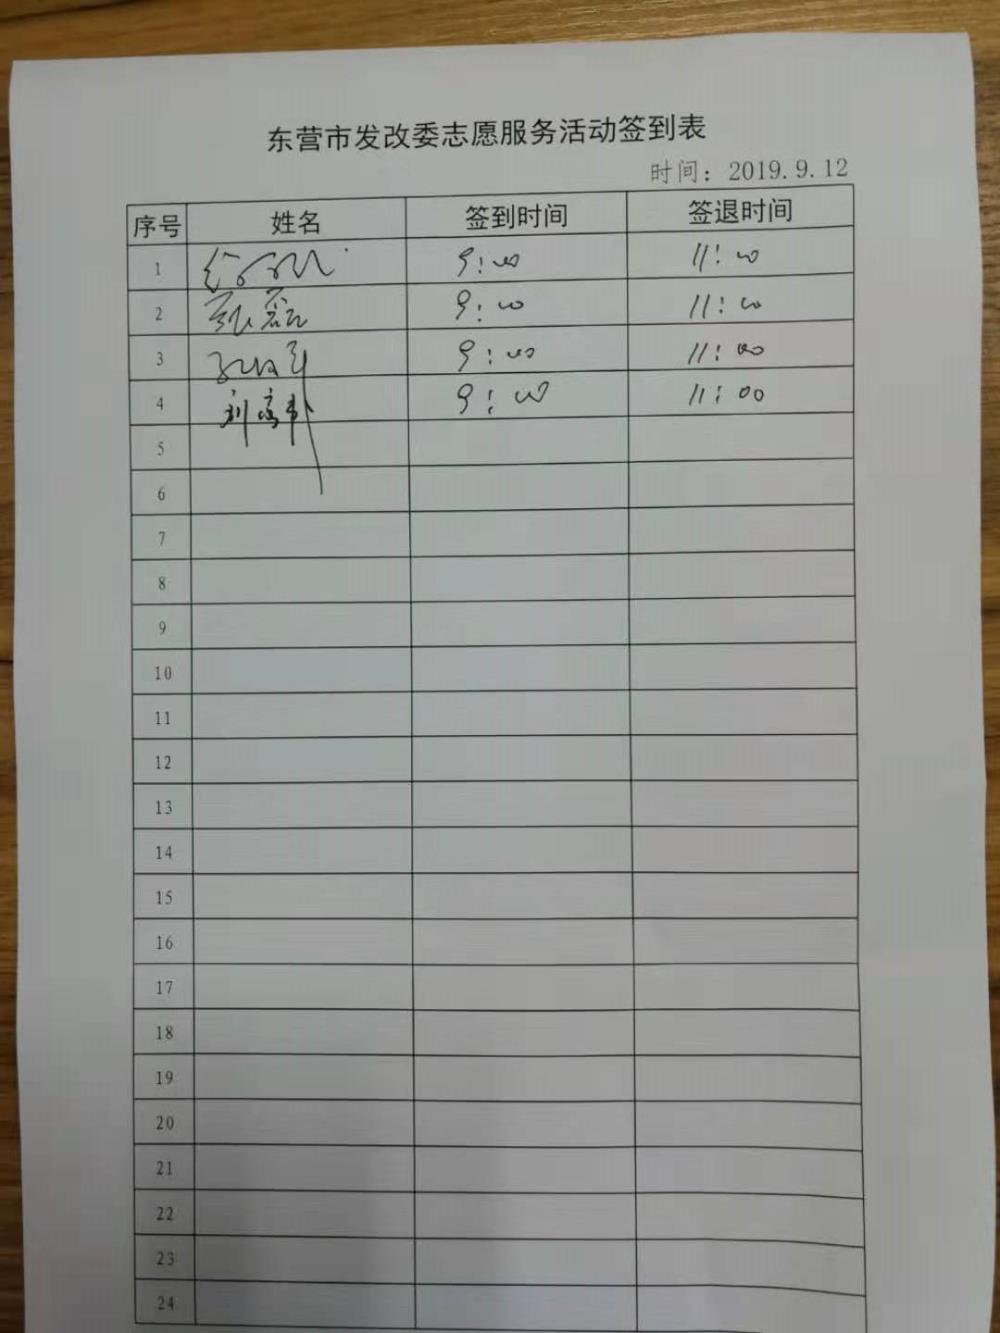 东营市发改委志愿服务活动签到表
时间：2019.9.12
序号 姓名 签到时间 签退时间
1 9:00 11:00
2 张磊 9:00 11:00
3 9:00 11:00
4 9:00 11:00
5
6
7
8
9
10
11
12
13
14
15
16
17
18
19
20
21
22
23
24